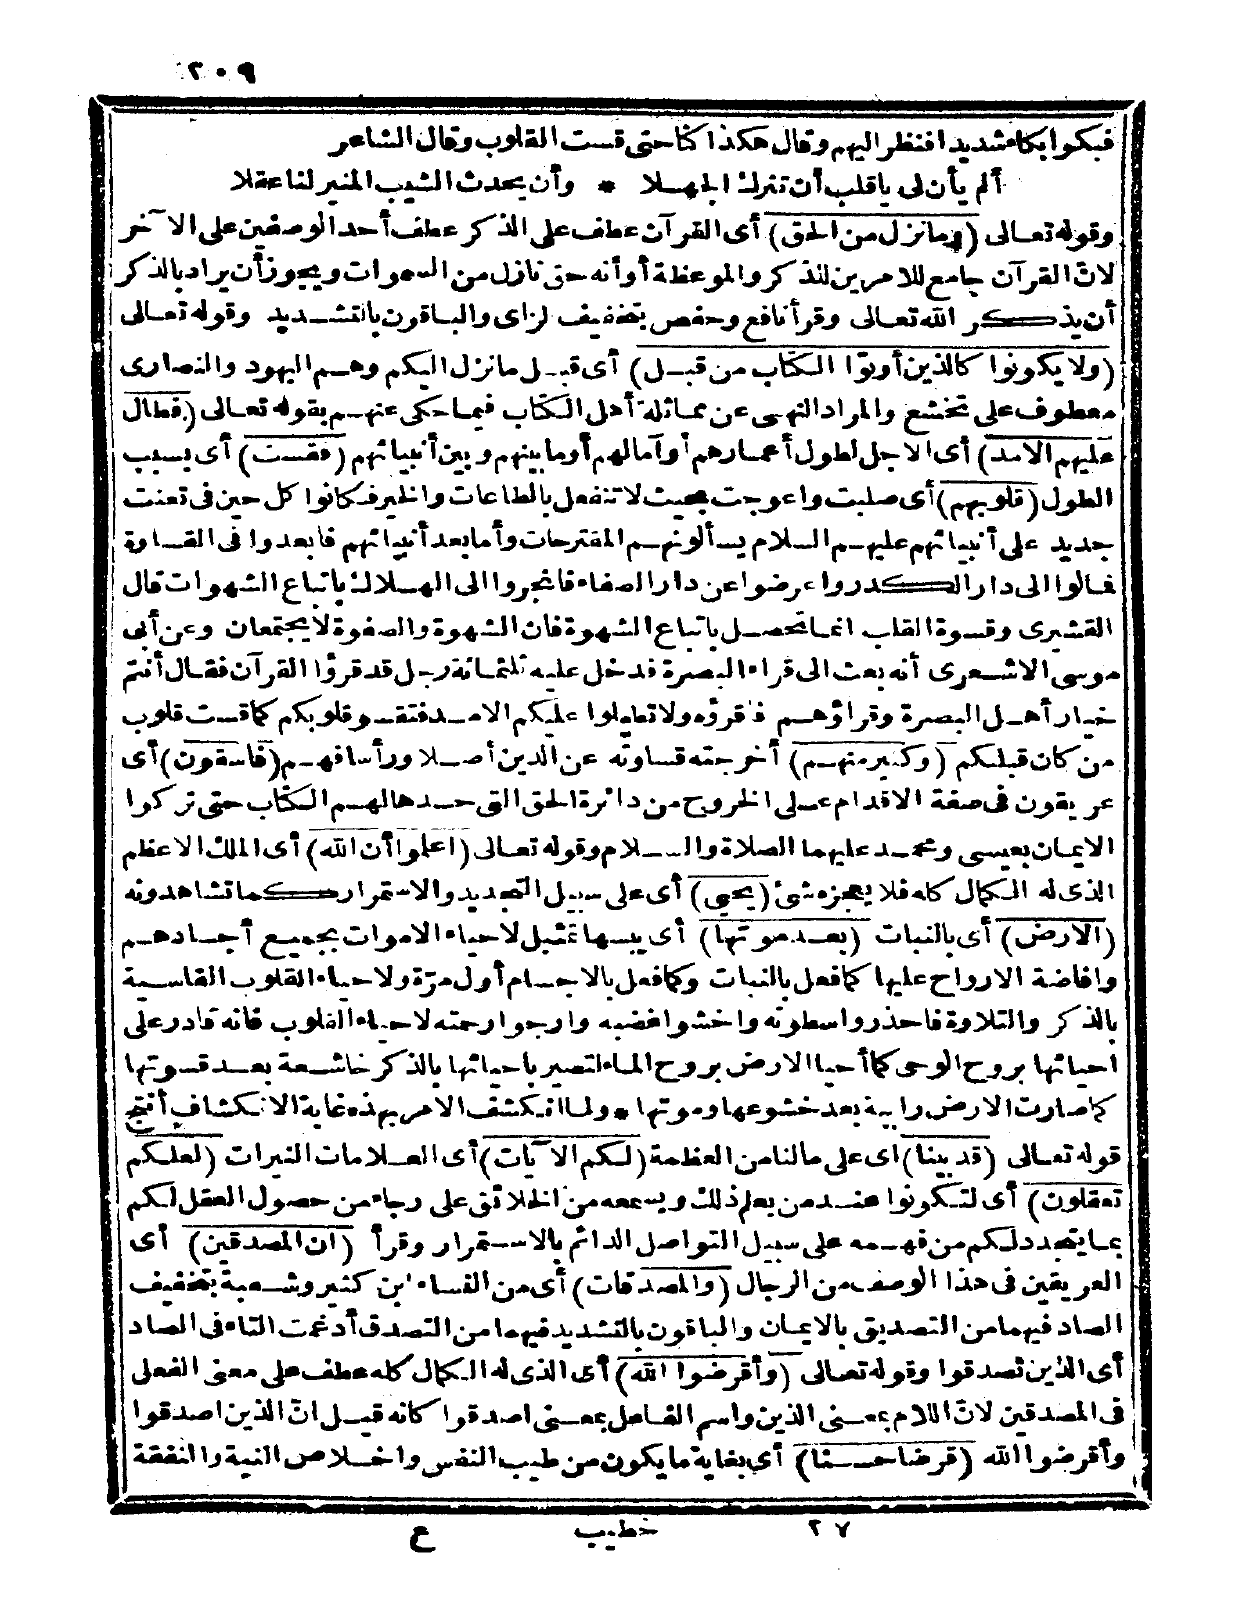 ٢٠٩
فبكوا بكاء شديدا فنظر اليهم وقال هكذا كنا حتى قست القلوب وقال الشاعر
ألم يأن لى يا قلب أن تترك الجهلا * وأن يحدث الشيب المنير لنا عقلا
وقوله تعالى (وما نزل من الحق) أى القرآن عطف على الذكر عطف أحد الوصفين على الآخر
لانّ القرآن جامع للامرين للذكر والموعظة أو أنه حق نازل من السموات ويجوز أن يراد بالذكر
أن يذكر الله تعالى وقرأ نافع وحفص بتخفيف الزاى والباقون بالتشديد وقوله تعالى
(ولا يكونوا كالذين أوتوا الكتاب من قبل) أى قبل ما نزل اليكم وهم اليهود والنصارى
معطوف على تخشع والمراد النهى عن مماثلة أهل الكتاب فيما حكى عنهم بقوله تعالى (فطال
عليهم الامد) أى الاجل لطول أعمارهم أو آمالهم أو ما بينهم وبين أنبيائهم (فقست) أى بسبب
الطول (قلوبهم) أى صلبت واعوجت بحيث لا تنفعل بالطاعات والخير فكانوا كل حين فى تعنت
جديد على أنبيائهم عليهم السلام يسألونهم المقترحات وأما بعد أنبيائهم فابعدوا فى القساوة
فمالوا الى دار الكدر واعرضوا عن دار الصفاء فانجروا الى الهلاك باتباع الشهوات قال
القشيرى وقسوة القلب انما تحصل باتباع الشهوة فان الشهوة والصفوة لا يجتمعان وعن أبى
موسى الاشعرى أنه بعث الى قراء البصرة فدخل عليه ثلثمائة رجل قد قرؤا القرآن فقال أنتم
خيار أهل البصرة وقراؤهم فاقرؤه ولا تطيلوا عليكم الامد فتقسو قلوبكم كما قست قلوب
من كان قبلكم (وكثير منهم) أخرجته قساوته عن الدين أصلا ورأسا فهم (فاسقون) أى
عريقون فى صفة الاقدام على الخروج من دائرة الحق التى حدها لهم الكتاب حتى تركوا
الايمان بعيسى ومحمد عليهما الصلاة والسلام وقوله تعالى (اعلموا أن الله) أى الملك الاعظم
الذى له الكمال كله فلا يعجزه شئ (يحيى) أى على سبيل التجديد والاستمرار كما تشاهدونه
(الارض) أى بالنبات (بعد موتها) أى يبسها تمثيل لاحياء الاموات بجميع أجسادهم
وافاضة الارواح عليها كما فعل بالنبات وكما فعل بالاجسام أول مرّة ولاحياء القلوب القاسية
بالذكر والتلاوة فاحذروا سطوته واخشوا غضبه وارجوا رحمته لاحياء القلوب فانه قادر على
احيائها بروح الوحى كما أحيا الارض بروح الماء لتصير باحيائها بالذكر خاشعة بعد قسوتها
كما صارت الارض رابية بعد خشوعها وموتها * ولما انكشف الامر بهذه غاية الانكشاف أنتج
قوله تعالى (قد بينا) اى على مالنا من العظمة (لكم الآيات) أى العلامات النيرات (لعلكم
تعقلون) أى لتكونوا عند من يعلم ذلك ويسمعه من الخلائق على رجاء من حصول العقل لكم
بما يتجدد لكم من فهمه على سبيل التواصل الدائم بالاستمرار وقرأ (ان المصدقين) أى
العريقين فى هذا الوصف من الرجال (والمصدقات) أى من النساء ابن كثير وشعبة بتخفيف
الصاد فيهما من التصديق بالايمان والباقون بالتشديد فيهما من التصدق أدغمت التاء فى الصاد
أى الذين تصدقوا وقوله تعالى (وأقرضوا الله) أى الذى له الكمال كله عطف على معنى الفعل
فى المصدقين لانّ اللام بمعنى الذين واسم الفاعل بمعنى اصدقوا كانه قيل انّ الذين اصدقوا
وأقرضوا الله (قرضا حسنا) أى بغاية ما يكون من طيب النفس واخلاص النية والنفقة
٢٧ خطيب ع